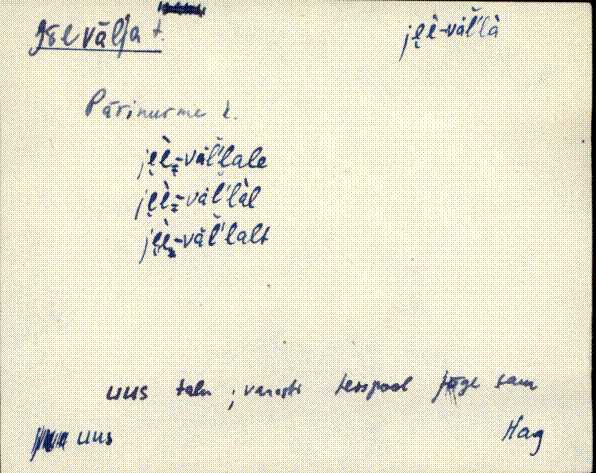 Jõevälja t.
jẹ̀ẹ̀-väl̆'l̀à
Pärinurme k.
jẹ̀ẹ̀-väl̆'l̀ale
jẹ̀ẹ̀-väl'l̀àl
jẹ̀ẹ̀-väl̆'l̀alt
uus talu ; varsti teispool jõge sam
uus
Hag